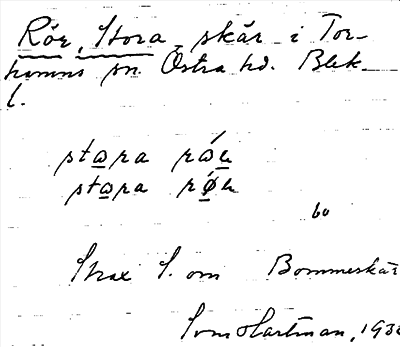 Rör, Stora, skär i Tor-
hamns sn. Östra hd. Blek.
l.
stora
stora
bo
Strax S. om Bommeskär
Sven Hartman, 193